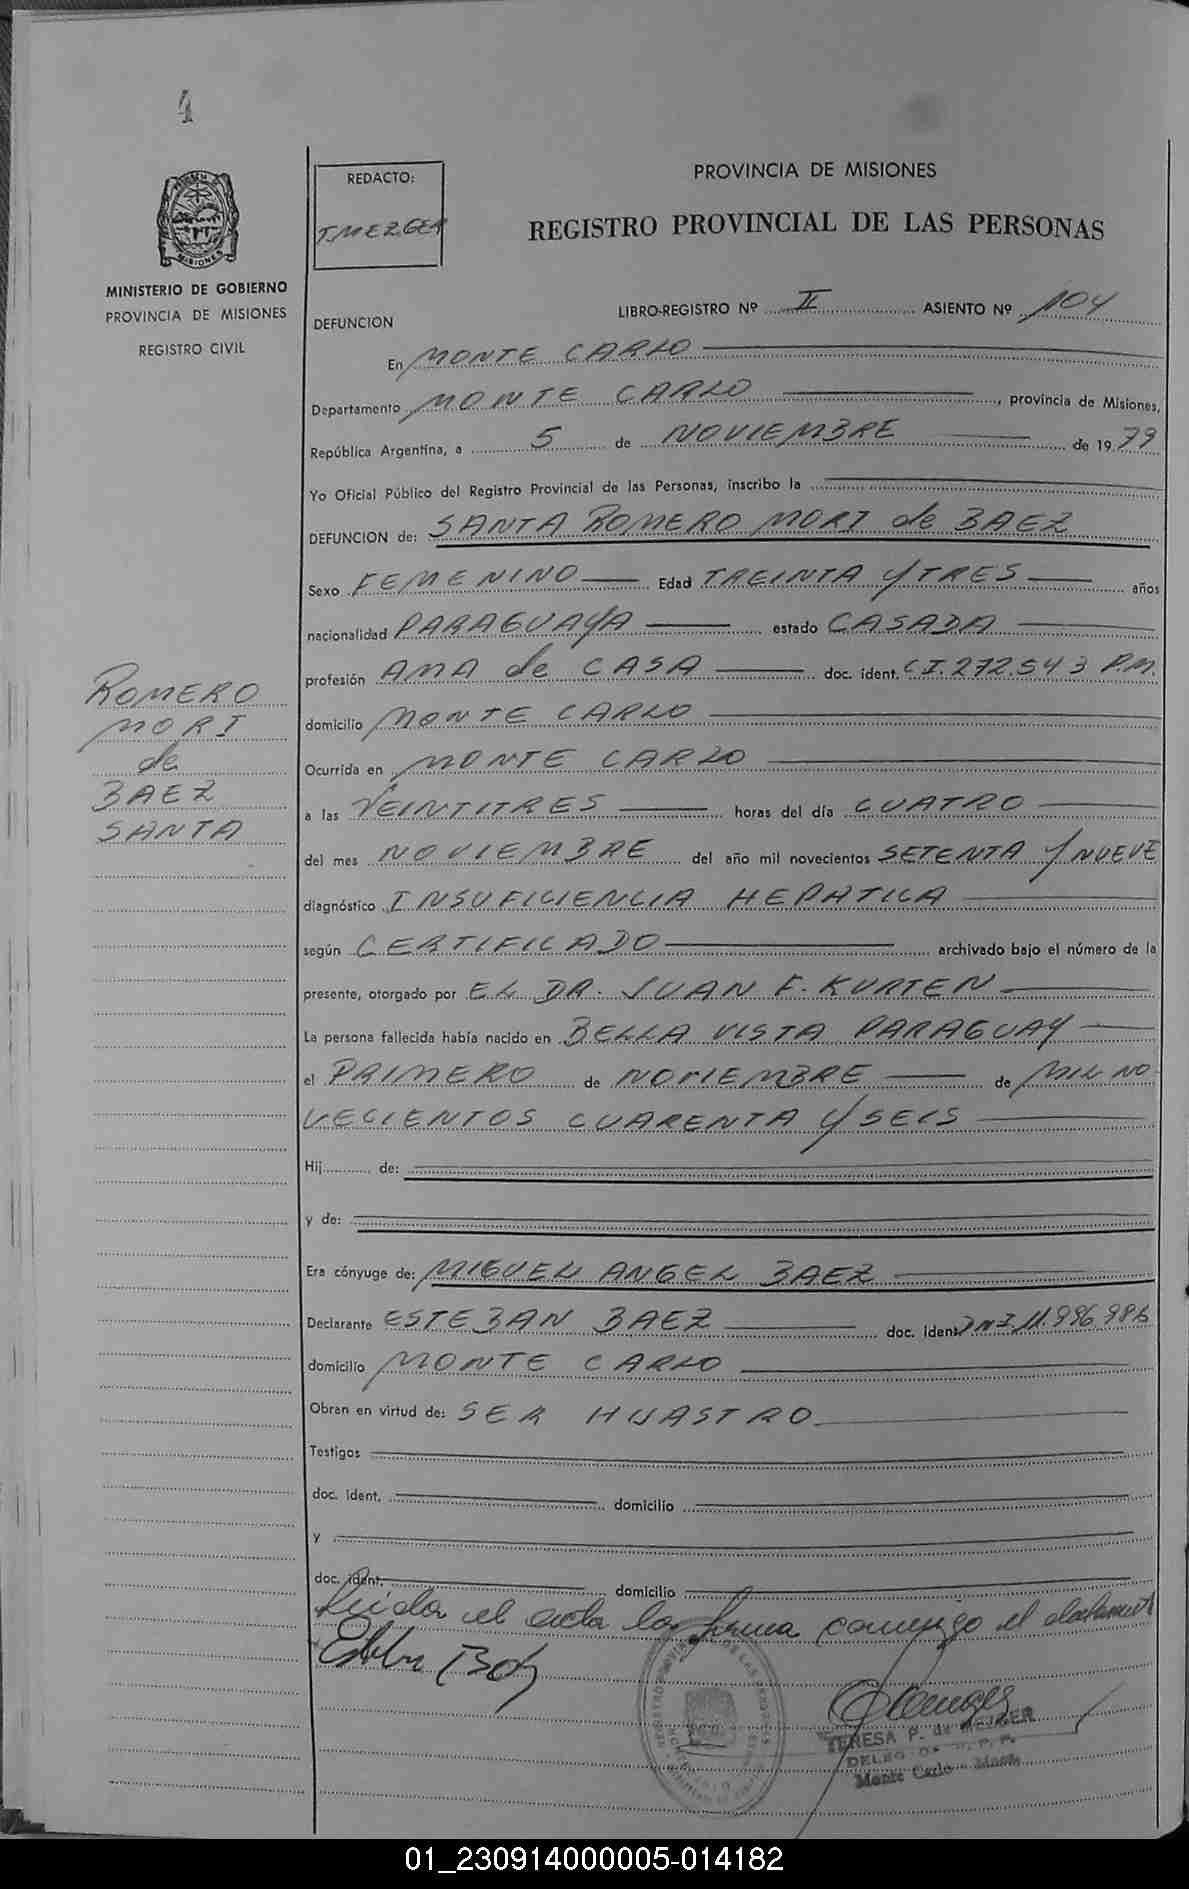 4
PROVINCIA DE MISIONES
REGISTRO PROVINCIAL DE LAS PERSONAS
REDACTO:
T. MEZGER
MISIONES
MINISTERIO DE GOBIERNO
PROVINCIA DE MISIONES
REGISTRO CIVIL
LIBRO-REGISTRO Nº II ASIENTO Nº 104
DEFUNCION
En MONTE CARLO
Departamento MONTE CARLO, provincia de Misiones,
República Argentina, a 5 de NOVIEMBRE de 1979
Yo Oficial Público del Registro Provincial de las Personas, inscribo la
DEFUNCION de: SANTA ROMERO MORI de BAEZ
Sexo FEMENINO Edad TREINTA Y TRES años
nacionalidad PARAGUAYA estado CASADA
profesión AMA de CASA doc. ident. C.I. 272.543 P.M.
domicilio MONTE CARLO
Ocurrida en MONTE CARLO
a las VEINTITRES horas del día CUATRO
del mes NOVIEMBRE del año mil novecientos SETENTA Y NUEVE
diagnóstico INSUFICIENCIA HEPATICA
según CERTIFICADO archivado bajo el número de la
presente, otorgado por EL DR. JUAN F. KURTEN
La persona fallecida había nacido en BELLA VISTA PARAGUAY
el PRIMERO de NOVIEMBRE de MIL NO
VECIENTOS CUARENTA Y SEIS
Hij de:
y de:
Era cónyuge de: MIGUEL ANGEL BAEZ
Declarante ESTEBAN BAEZ doc. ident. DNI 11.996.986
domicilio MONTE CARLO
Obran en virtud de: SER HIJASTRO
Testigos
doc. ident. domicilio
y
doc. ident. domicilio
Leída el acta la firma conmigo el declarante
TERESA P. de MEZGER
Monte Carlo - Mnes.
ROMERO
MORI
de
BAEZ
SANTA
01_230914000005-014182